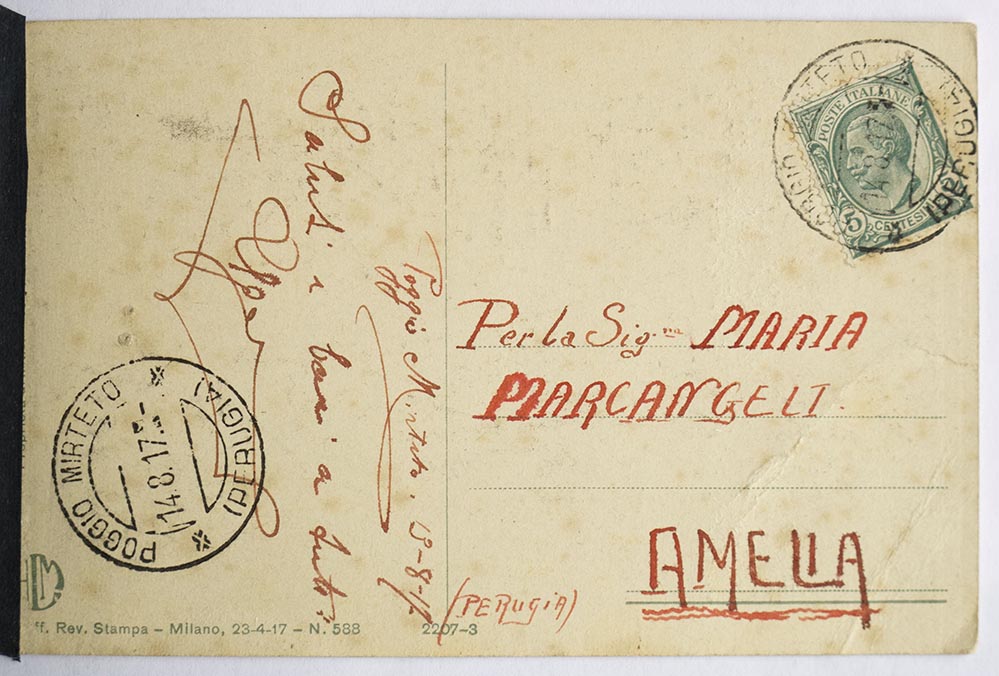 Saluti e baci a tutti
Poggio Mirteto,
Per la Sig.na MARIA
MARCANGELI.
AMELIA
(PERUGIA)
POSTE ITALIANE
5 CENTESIMI
POGGIO MIRTETO
(PERUGIA)
14.8.17
POGGIO MIRTETO
(PERUGIA)
14.8.17
ff. Rev. Stampa – Milano, 23-4-17 – N. 588
2207-3